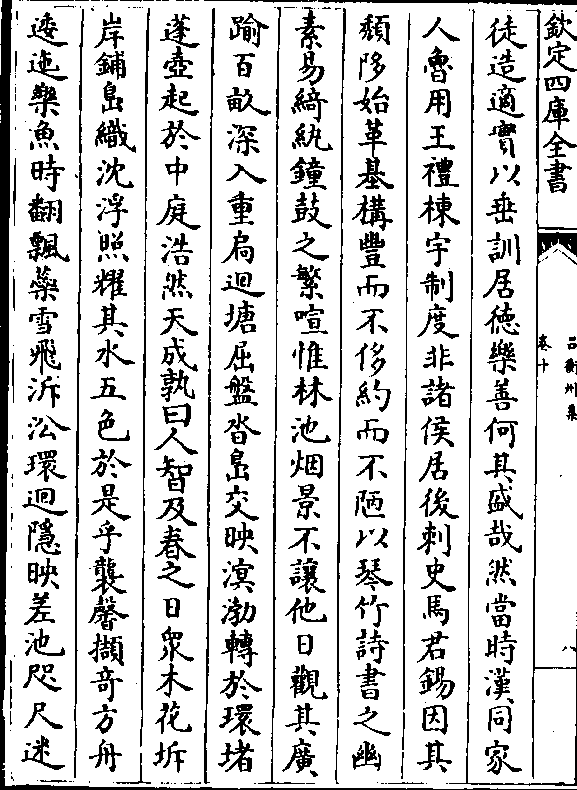 欽定四庫全書
呂衡州集
卷十
八
徒造適實以垂訓居德樂善何其盛哉然當時漢同家
人魯用王禮棟宇制度非諸侯居後刺史馬君錫因其
頽陊始革基構豐而不侈約而不陋以琴竹詩書之幽
素易綺紈鐘鼓之繁喧惟林池烟景不讓他日觀其廣
踰百畝深入重扃迴塘屈盤沓島交映溟渤轉於環堵
蓬壺起於中庭浩然天成孰曰人智及春之日衆木花坼
岸鋪島織沈浮照耀其水五色於是乎襲馨擷奇方舟
逶迤樂魚時翻飄蘂雪飛泝㳂環迴隱映差池咫尺迷